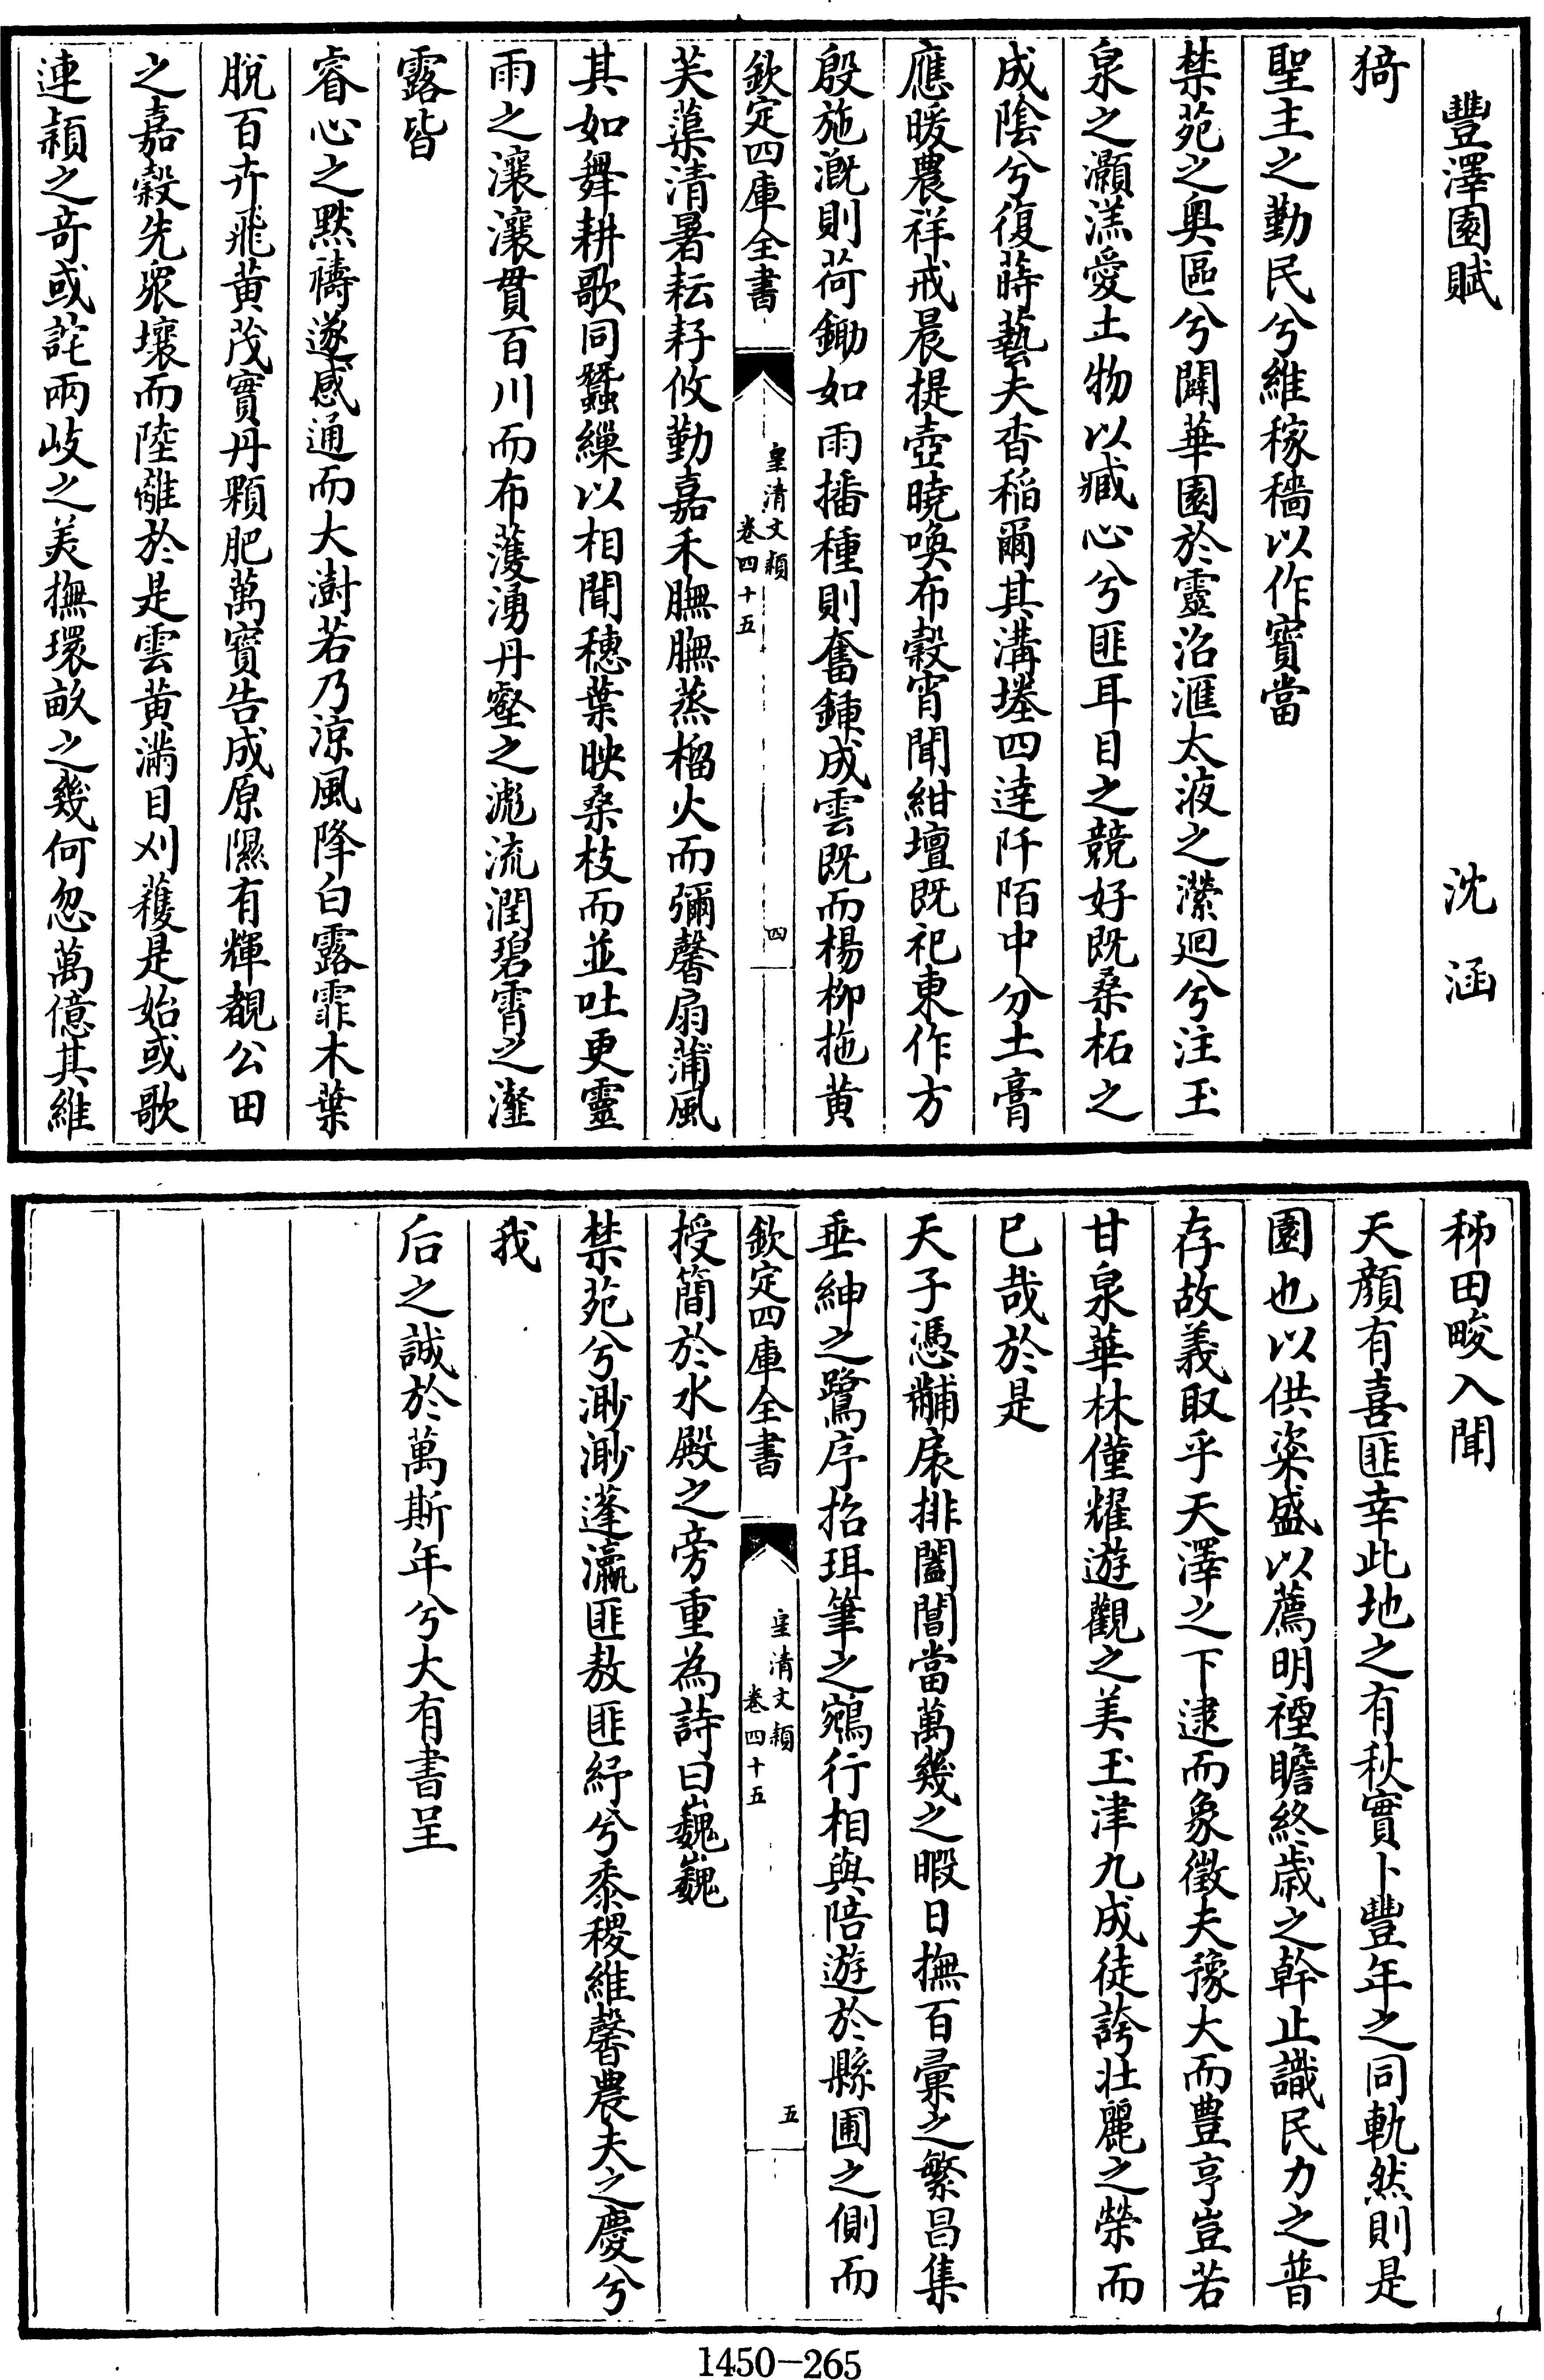 豐澤園賦 沈涵
猗
聖主之勤民兮維稼穡以作寶當
禁苑之奧區兮闢華園於靈沼滙太液之瀠迴兮注玉
泉之灝溔愛土物以臧心兮匪耳目之競好既桑柘之
成陰兮復蒔藝夫香稻爾其溝塍四達阡陌中分土膏
應暖農祥戒晨提壺曉喚布穀宵聞紺壇既祀東作方
殷施溉則荷鋤如雨播種則奮鍤成雲既而楊柳拖黄
欽定四庫全書 皇清文穎 卷四十五 四
芙蕖清暑耘耔攸勤嘉禾膴膴蒸榴火而彌馨扇蒲風
其如舞耕歌同蠶繅以相聞穗葉映桑枝而並吐更靈
雨之瀼瀼貫百川而布濩湧丹壑之滮流潤碧霄之瀣
露皆
睿心之默禱遂感通而大澍若乃涼風降白露霏木葉
脫百卉飛黄茂實丹顆肥萬寶告成原隰有輝覩公田
之嘉穀先衆壤而陸離於是雲黄滿目刈穫是始或歌
連穎之竒或詫兩岐之美撫環畝之幾何忽萬億其維
秭田畯入聞
天顔有喜匪幸此地之有秋實卜豐年之同軌然則是
園也以供粢盛以薦明禋瞻終歲之幹止識民力之普
存故義取乎天澤之下逮而象徵夫豫大而豐亨豈若
甘泉華林僅耀遊觀之美玉津九成徒誇壯麗之榮而
已哉於是
天子憑黼扆排闔閶當萬幾之暇日撫百彙之繁昌集
垂紳之鷺序招珥筆之鵷行相與陪遊於縣圃之側而
欽定四庫全書 皇清文穎 卷四十五 五
授簡於水殿之旁重為詩曰巍巍
禁苑兮渺渺蓬瀛匪敖匪紓兮黍稷維馨農夫之慶兮
我
后之誠於萬斯年兮大有書呈
1450-265